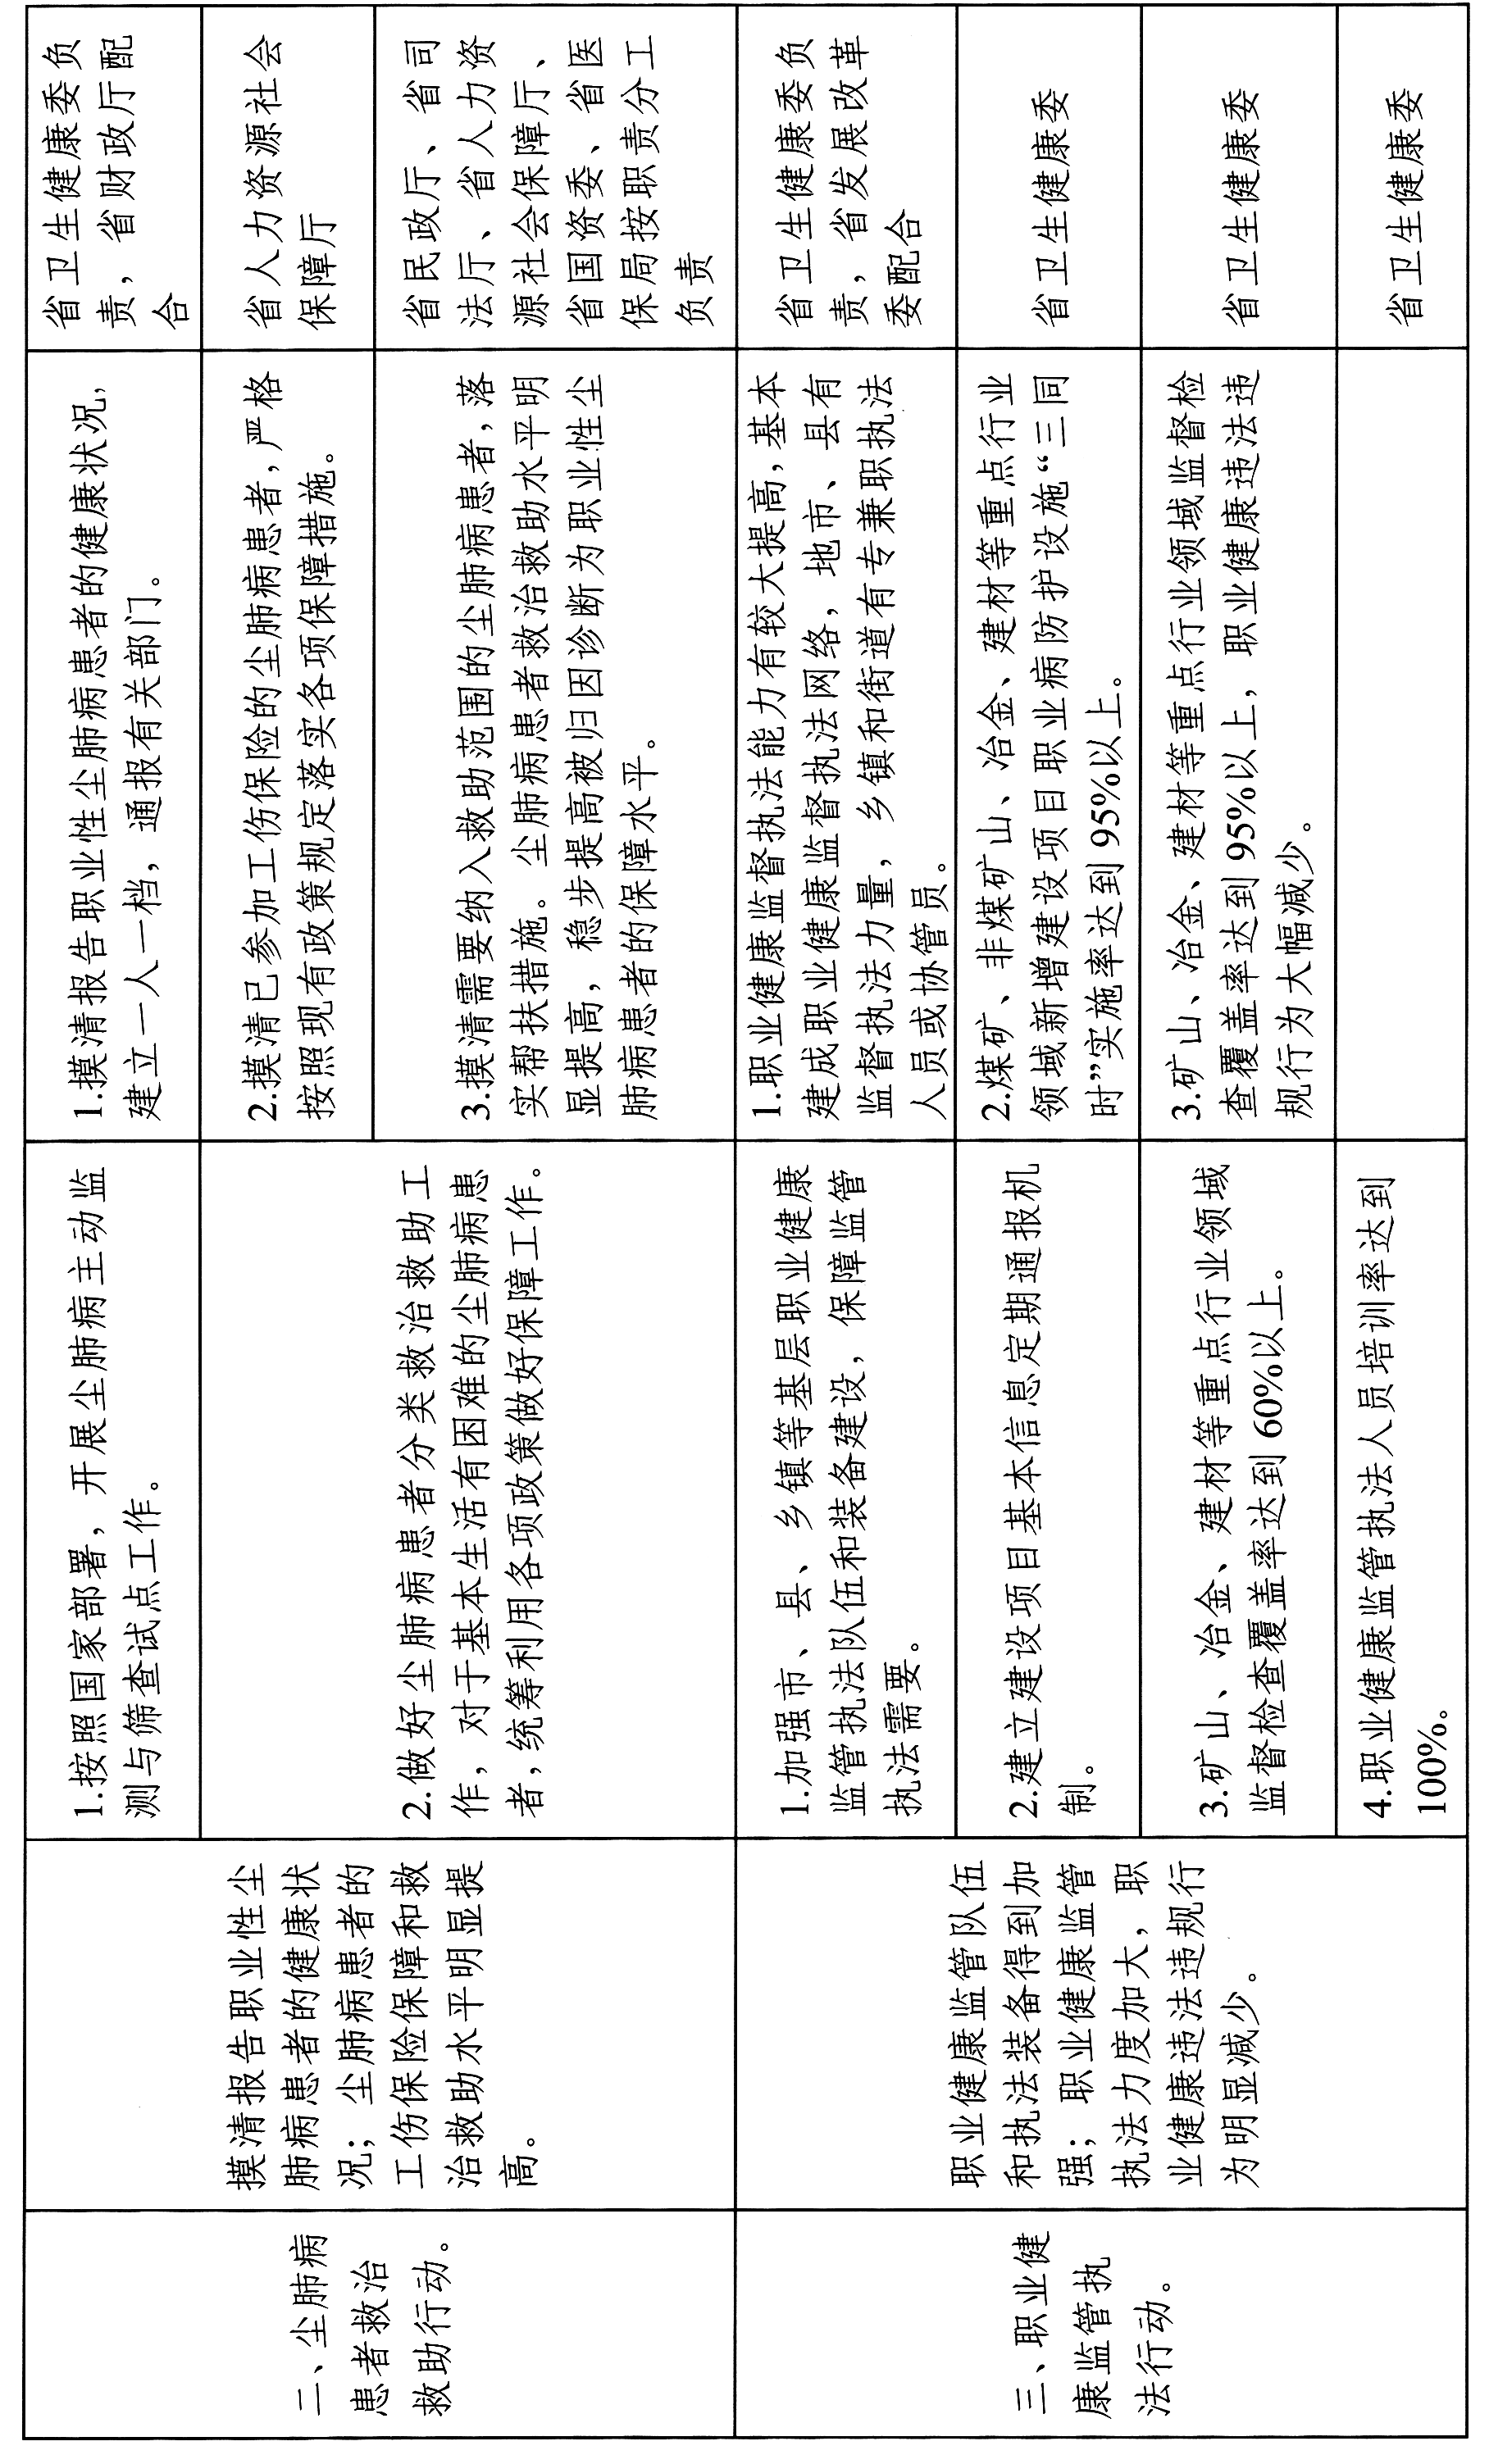 二、尘肺病
患者救治
救助行动。
摸清报告职业性尘
肺病患者的健康状
况；尘肺病患者的
工伤保险保障和救
治救助水平明显提
高。
1.按照国家部署，开展尘肺病主动监
测与筛查试点工作。
1.摸清报告职业性尘肺病患者的健康状况，
建立一人一档，通报有关部门。
省卫生健康委负
责，省财政厅配
合
2.做好尘肺病患者分类救治救助工
作，对于基本生活有困难的尘肺病患
者，统筹利用各项政策做好保障工作。
2.摸清已参加工伤保险的尘肺病患者，严格
按照现有政策规定落实各项保障措施。
省人力资源社会
保障厅
3.摸清需要纳入救助范围的尘肺病患者，落
实帮扶措施。尘肺病患者救治救助水平明
显提高，稳步提高被归因诊断为职业性尘
肺病患者的保障水平。
省民政厅、省司
法厅、省人力资
源社会保障厅、
省国资委、省医
保局按职责分工
负责
三、职业健
康监管执
法行动。
职业健康监管队伍
和执法装备得到加
强；职业健康监管
执法力度加大，职
业健康违法违规行
为明显减少。
1.加强市、县、乡镇等基层职业健康
监管执法队伍和装备建设，保障监管
执法需要。
1.职业健康监督执法能力有较大提高，基本
建成职业健康监督执法网络，地市、县有
监督执法力量，乡镇和街道有专兼职执法
人员或协管员。
省卫生健康委负
责，省发展改革
委配合
2.建立建设项目基本信息定期通报机
制。
2.煤矿、非煤矿山、冶金、建材等重点行业
领域新增建设项目职业病防护设施“三同
时”实施率达到 95%以上。
省卫生健康委
3.矿山、冶金、建材等重点行业领域
监督检查覆盖率达到 60%以上。
3.矿山、冶金、建材等重点行业领域监督检
查覆盖率达到 95%以上，职业健康违法违
规行为大幅减少。
省卫生健康委
4.职业健康监管执法人员培训率达到
100%。
省卫生健康委